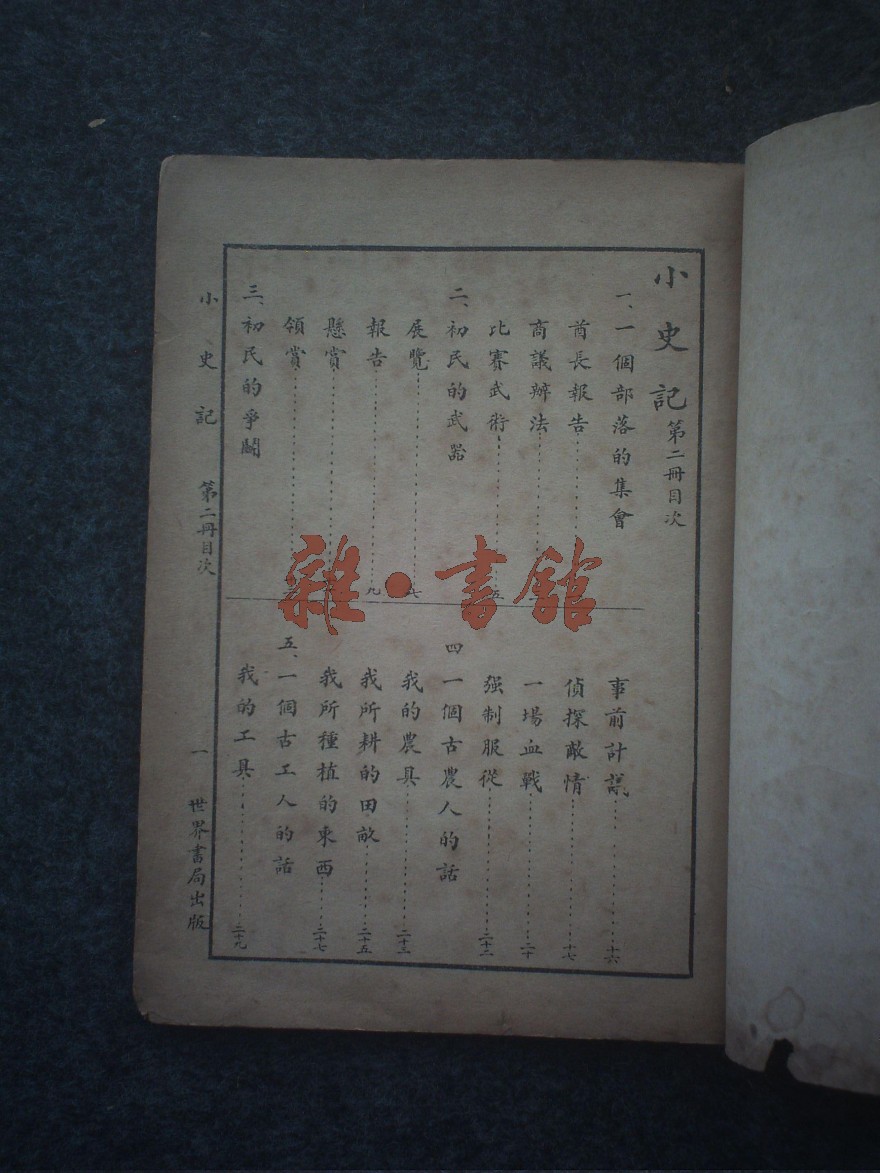 小史記 第二冊目次
一、一個部落的集會
酋長報告
商議辦法
比賽武術 五
二、初民的武器
展覽
報告 九
懸賞
領賞
三、初民的爭鬭
事前計議 十六
偵探敵情 十七
一場血戰 二十
强制服從 二十二
四 一個古農人的話
我的農具 二十三
我所耕的田畝 二十五
我所種植的東西 二十七
五、一個古工人的話
我的工具 二十九
小史記 第二冊目次 一 世界書局出版
雜·書館